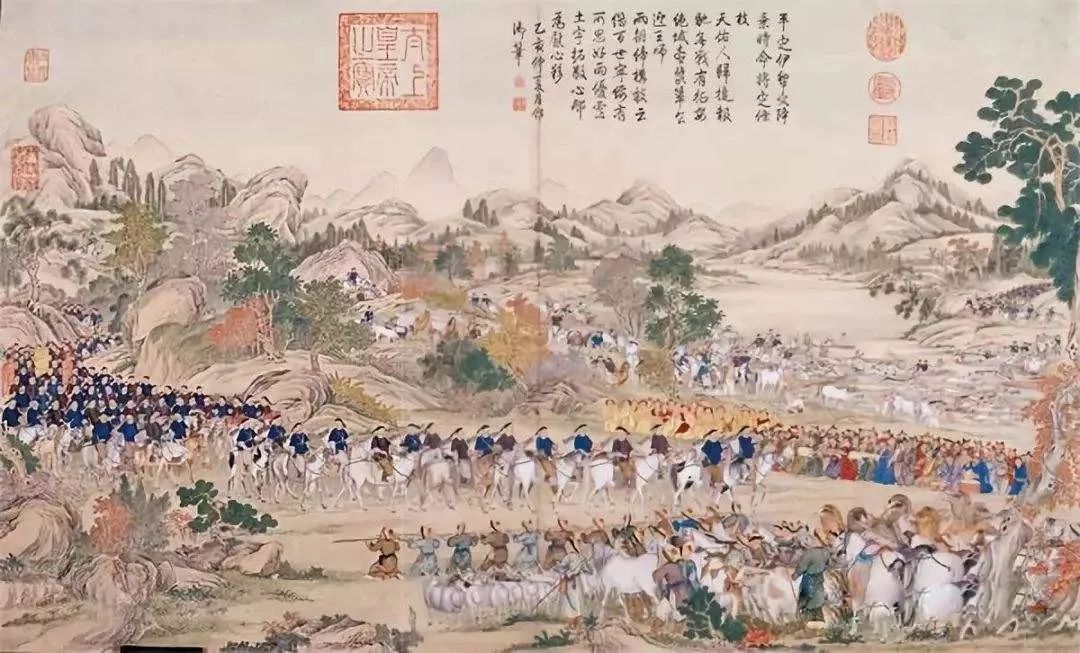 平定伊犁受降
乘時命將定條
枝
天佑人歸捷報
馳無戰有征安
絶域壺漿簞食
迎王師
兩朝締構敢云
繼百世寧綏有
所思好雨優霑
土宇拓敬心那
為慰心移
乙亥仲夏月作
御筆
太上皇帝之寶